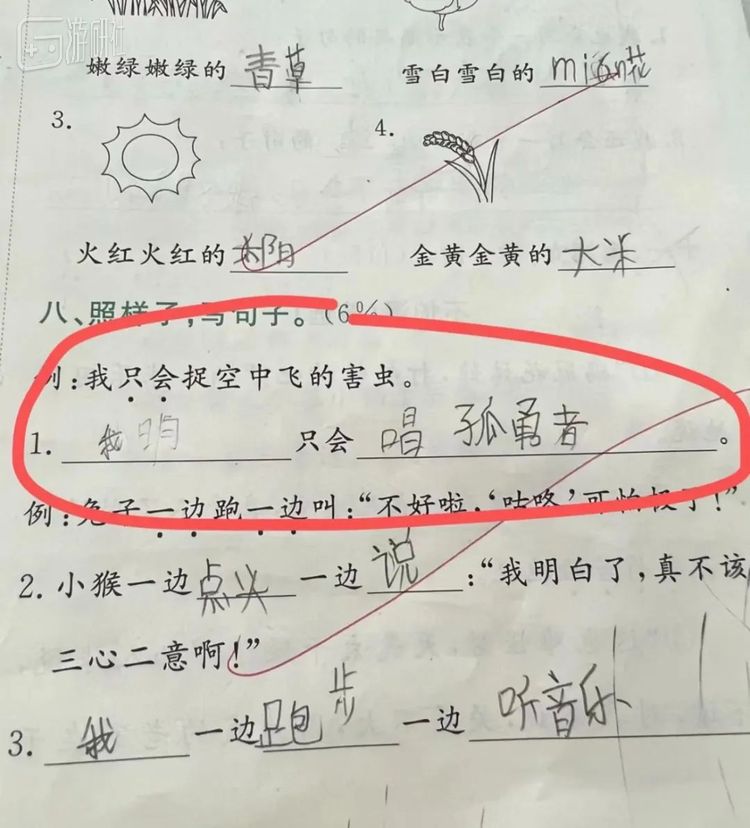 游研社
嫩绿嫩绿的 青草 雪白雪白的 mián花
3. 4.
火红火红的 太阳 金黄金黄的 大米
八、照样子,写句子。(6%)
例:我只会捉空中飞的害虫。
1. 我 只会 唱 孤勇者 。
例:兔子一边跑一边叫:“不好啦,‘咕咚’可怕极了!”
2. 小猴一边 点头 一边 说 :“我明白了,真不该
三心二意啊!”
3. 我 一边 跑步 一边 听音乐